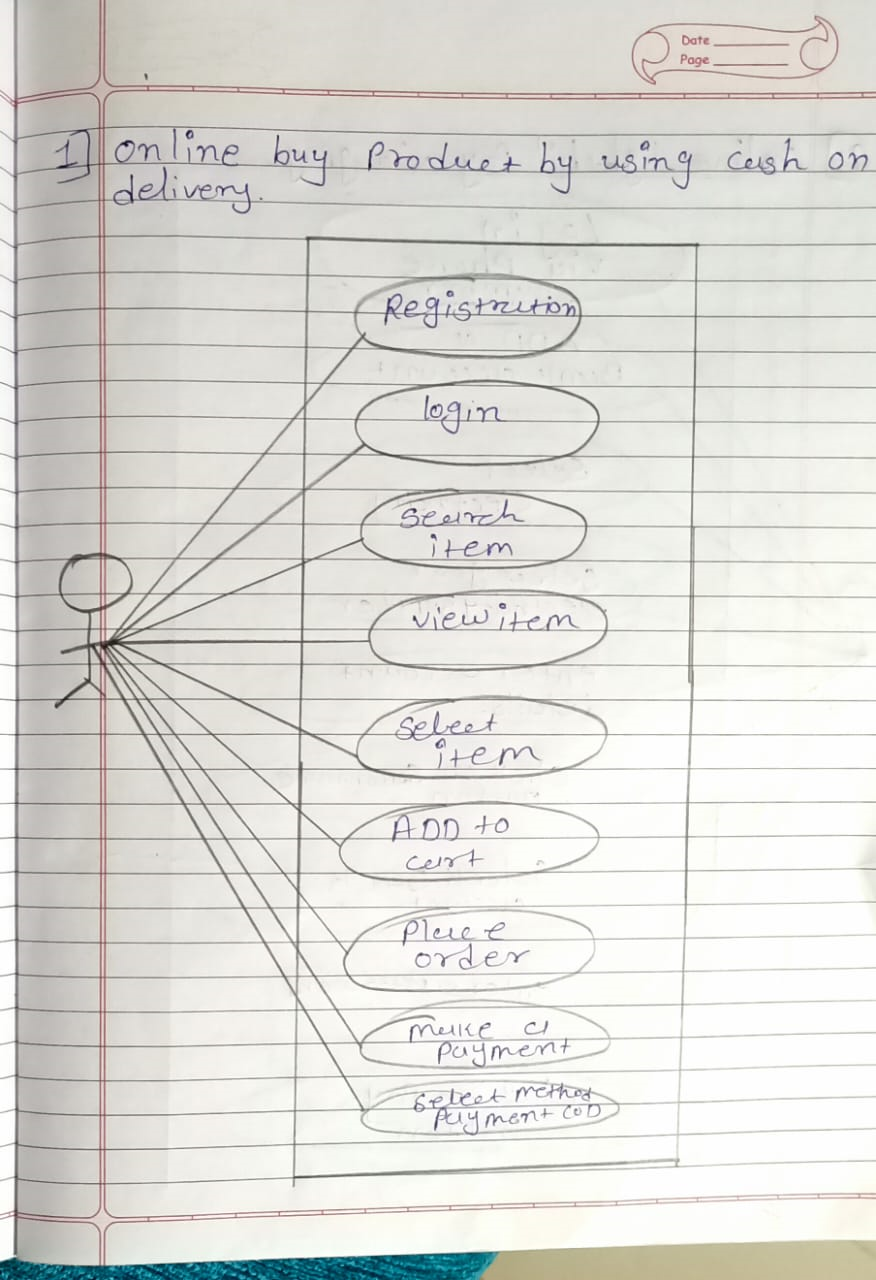 Date
Page
1] Online buy Product by using cash on
delivery.
Registration
login
search
item
view item
select
item
ADD to
cart
place
order
make a
payment
select method
payment COD